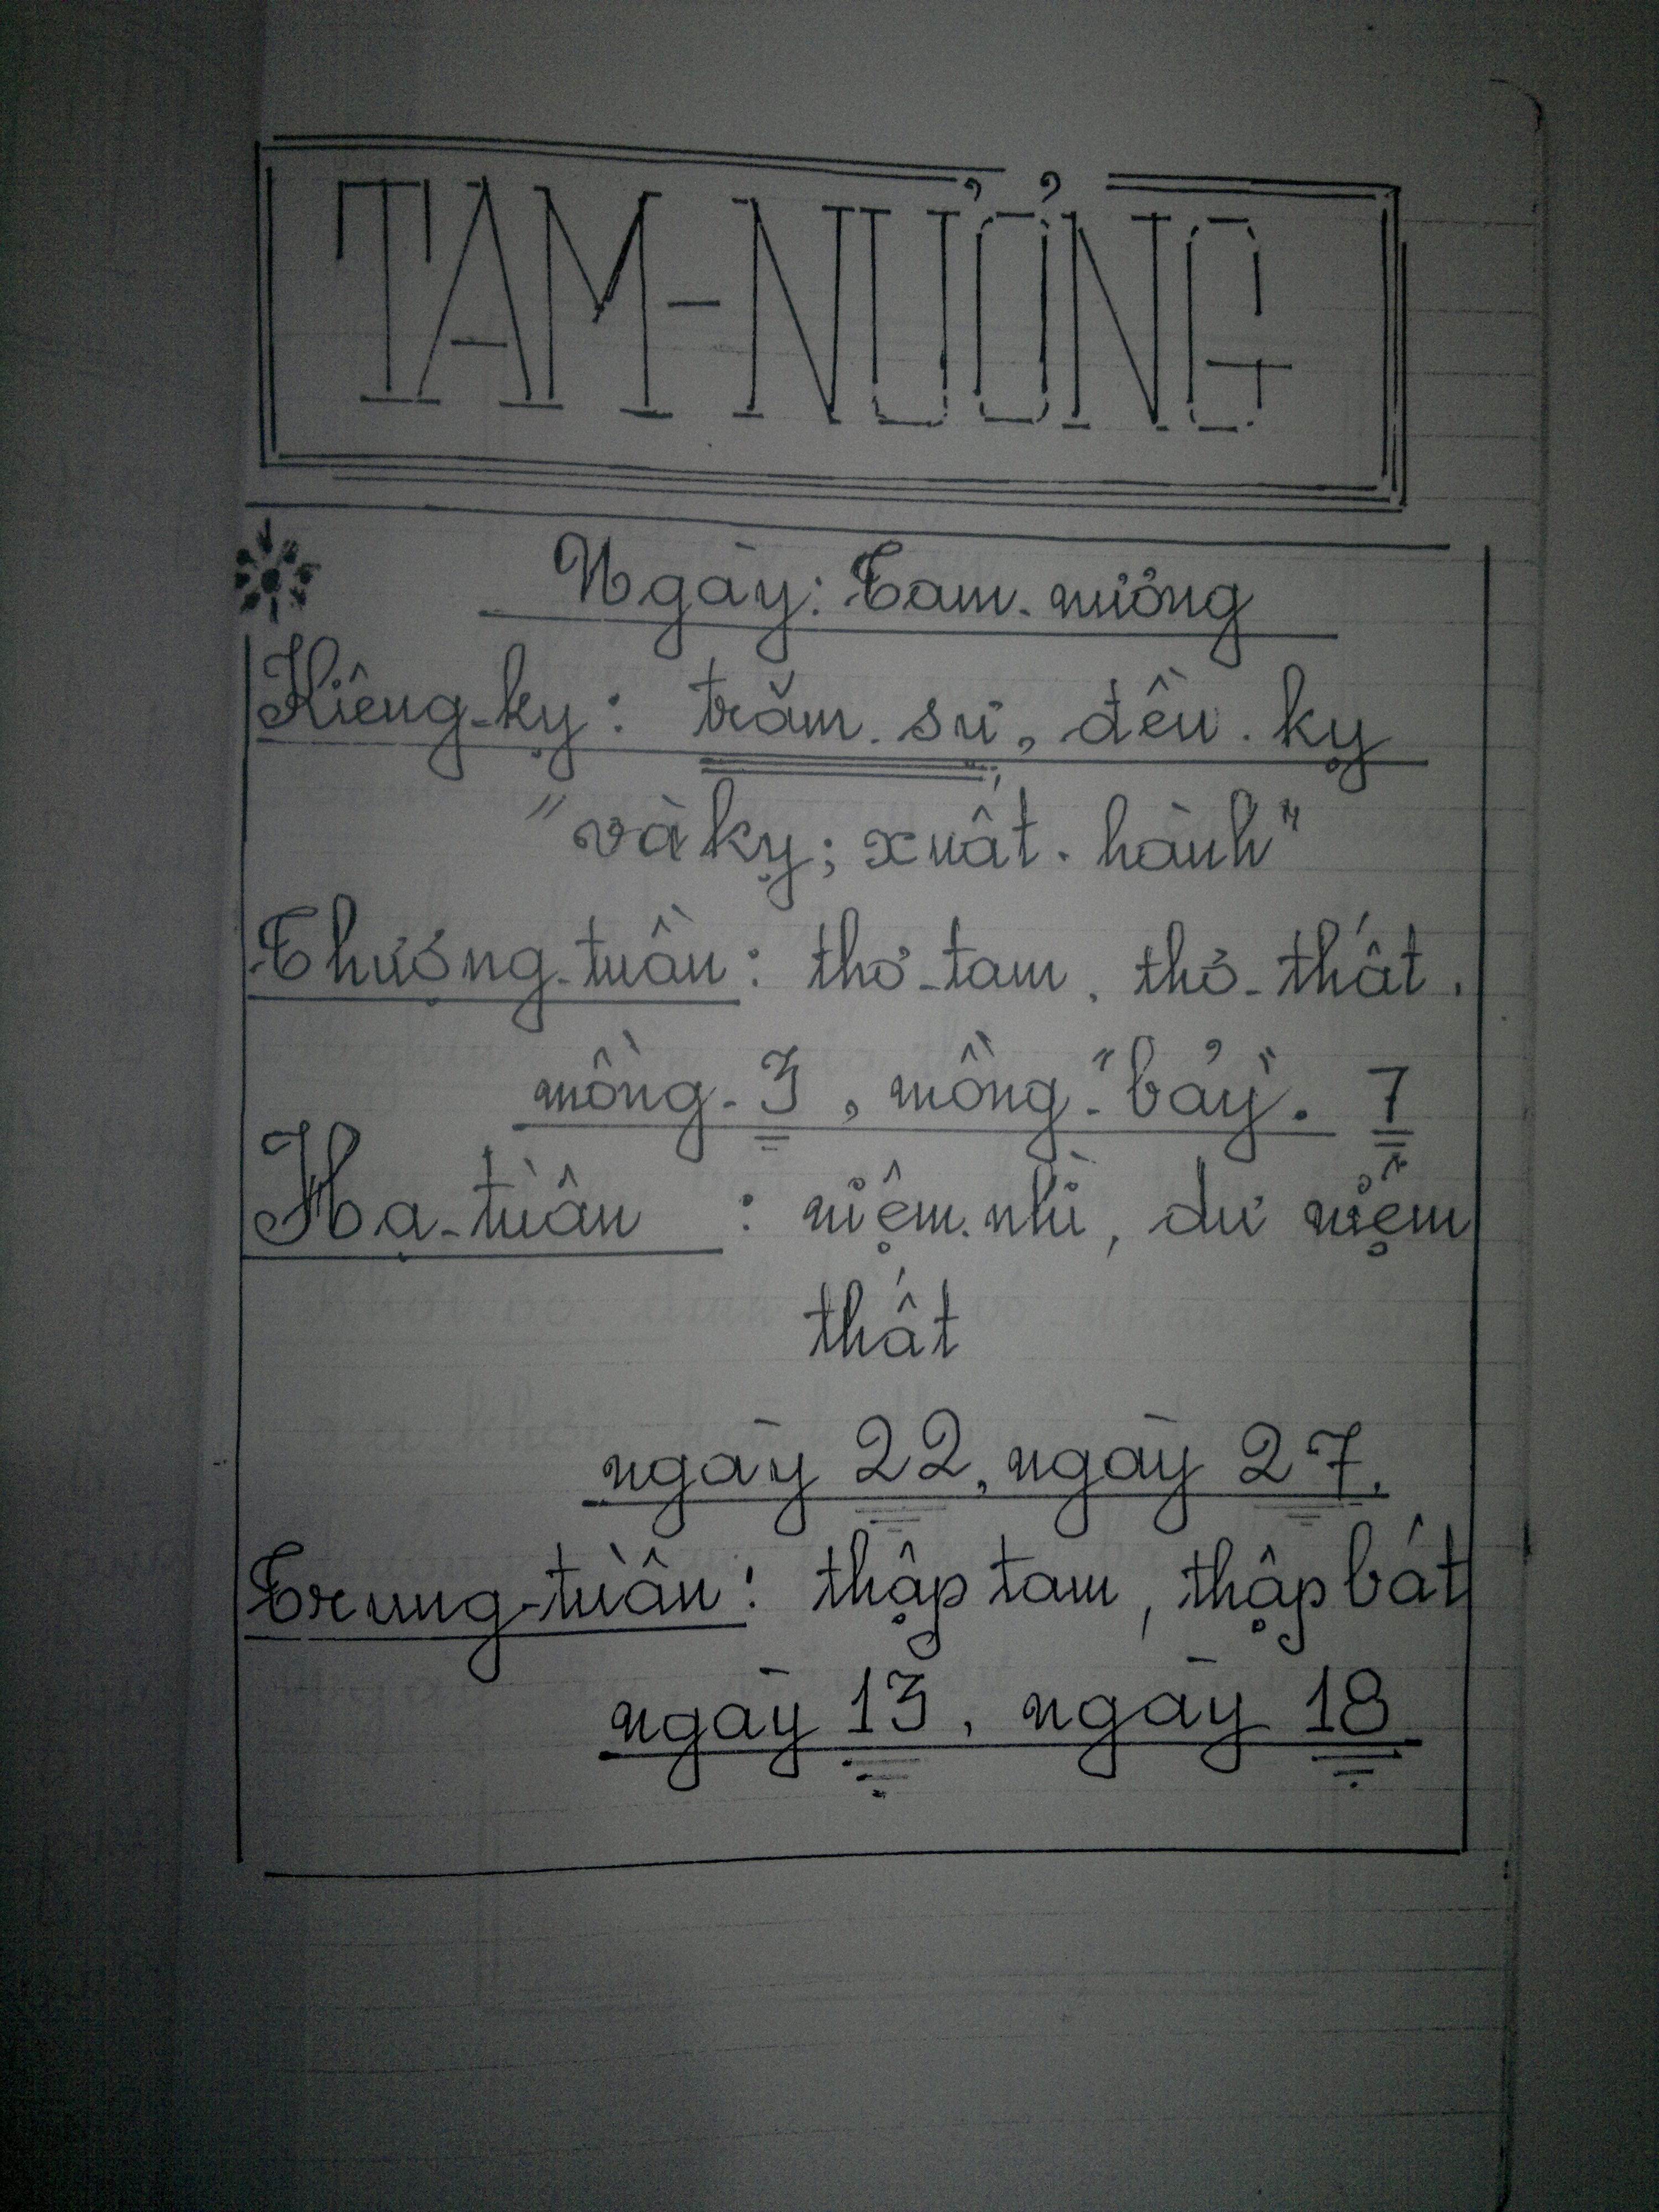 TAM-NƯƠNG
Ngày: Tam-nương
Kiêng-kỵ: trăm-sự, đều-kỵ
"và kỵ; xuất-hành"
Thượng-tuần: thơ-tam, thơ-thất.
mồng-3, mồng-"bảy". 7
Hạ-tuần: niệm-nhì, dư niệm
thất
ngày 22, ngày 27.
Trung-tuần: thập tam, thập bát
ngày 13, ngày 18